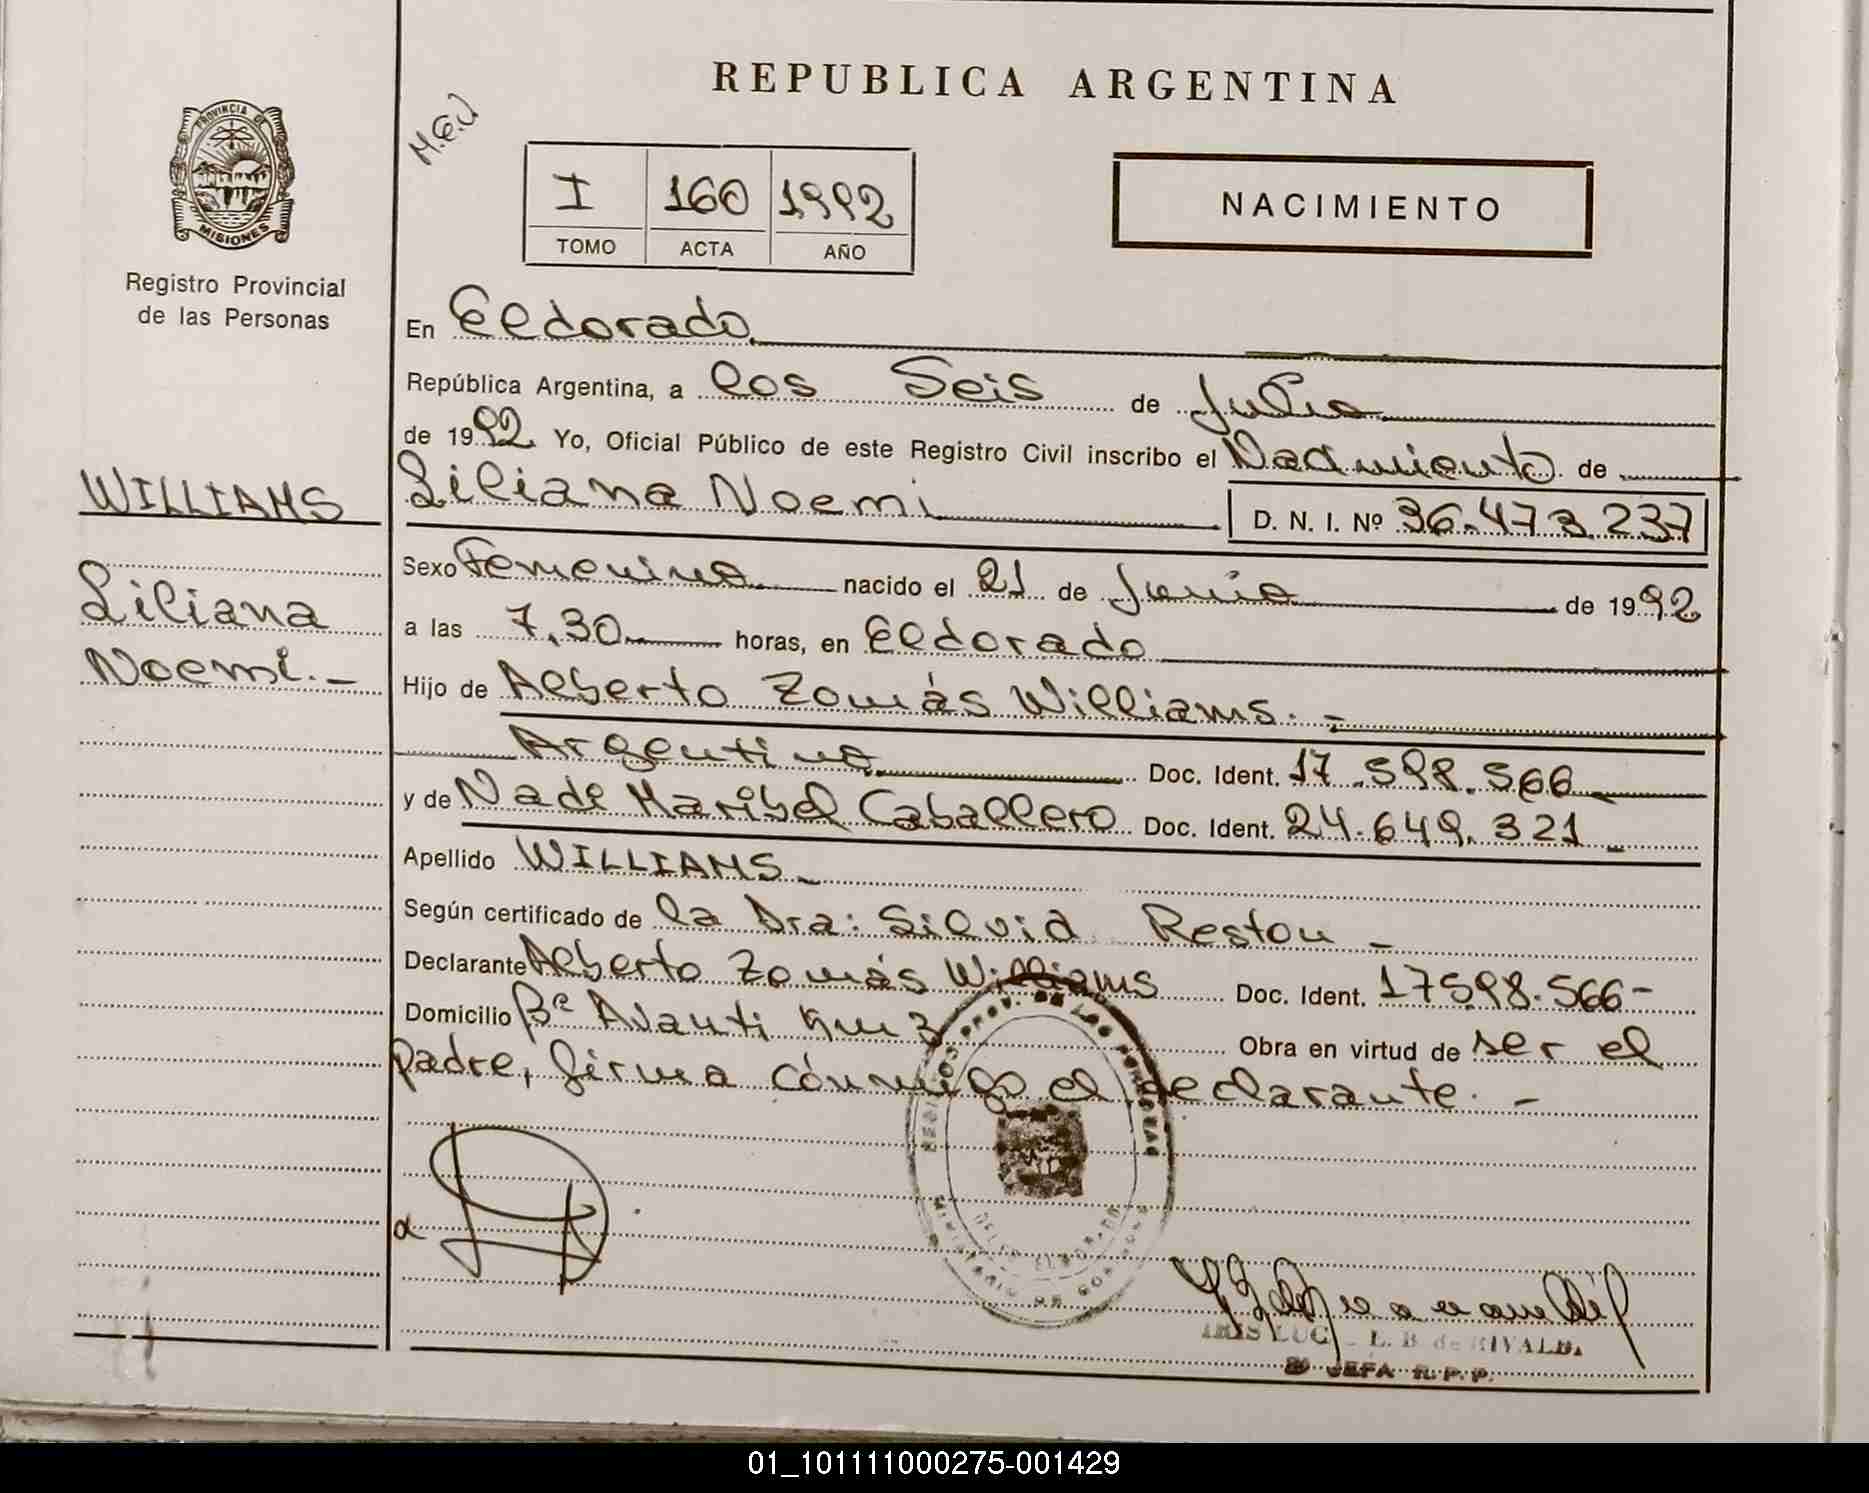 REPUBLICA ARGENTINA
PROVINCIA DE
MISIONES
Registro Provincial
de las Personas
M.E.J
I 160 1992
TOMO ACTA AÑO
NACIMIENTO
En Eldorado
República Argentina, a los Seis de Julio
de 1992 Yo, Oficial Público de este Registro Civil inscribo el Nacimiento de
WILLIAMS
Liliana Noemi D. N. I. Nº 36.473.237
Sexo Femenino nacido el 21 de Junio de 1992
Liliana
a las 7,30 horas, en Eldorado
Noemi.-
Hijo de Alberto Tomás Williams.-
Argentino Doc. Ident. 17.598.566
y de Nade Maribel Caballero Doc. Ident. 24.649.321
Apellido WILLIAMS
Según certificado de la Dra: Silvia Reston -
Declarante Alberto Tomás Williams Doc. Ident. 17598.566-
Domicilio Bº Avanti km 3 Obra en virtud de ser el
padre, firma cónmigo el declarante.-
MINISTERIO DE GOBIERNO
L. B. de RIVALD.
JEFA R. P. P.
01_101111000275-001429